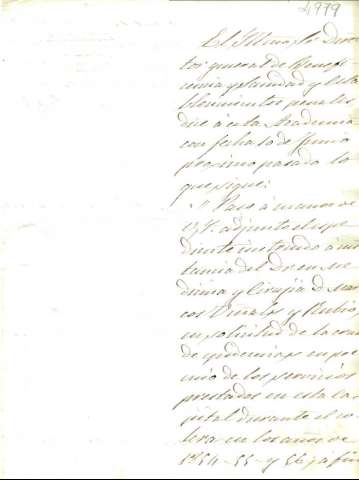 4979
El Ilmo. Sr. Direc
tor general de Benefi
cencia y Sanidad y Esta
blecimientos penales
dice á esta Academia
con fecha 10 de Junio
proximo pasado lo
que sigue:
"Paso á manos de
V. adjunto el espe
diente instruido á ins
tancia del Dr. en Me
dicina y Cirujía D. Mar
cos Viñals y Rubio,
en solicitud de la cruz
de epidemias en pre
mio de los servicios
prestados en esta ca
pital durante el có
lera en los años de
1854-55 y 56; á fin